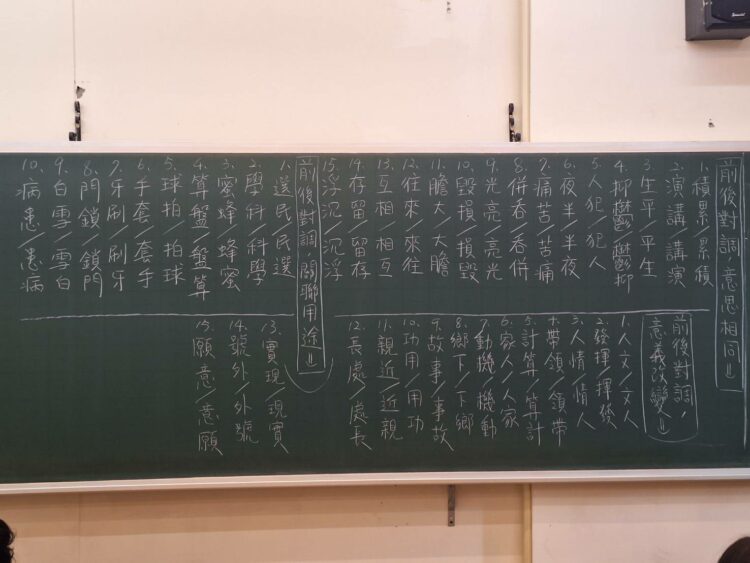 前後對調,意思相同=
1、積累/累積
2、演講/講演
3、生平/平生
4、抑鬱/鬱抑
5、人犯/犯人
6、夜半/半夜
7、痛苦/苦痛
8、併吞/吞併
9、光亮/亮光
10、毀損/損毀
11、膽大/大膽
12、往來/來往
13、互相/相互
14、存留/留存
15、浮沉/沉浮
前後對調,
意義改變=
1、人文/文人
2、發揮/揮發
3、人情/情人
4、帶領/領帶
5、計算/算計
6、家人/人家
7、動機/機動
8、鄉下/下鄉
9、故事/事故
10、功用/用功
11、親近/近親
12、長處/處長
前後對調,關聯用途=
1、選民/民選
2、學科/科學
3、蜜蜂/蜂蜜
4、算盤/盤算
5、球拍/拍球
6、手套/套手
7、牙刷/刷牙
8、門鎖/鎖門
9、白雪/雪白
10、病患/患病
13、實現/現實
14、號外/外號
15、願意/意願